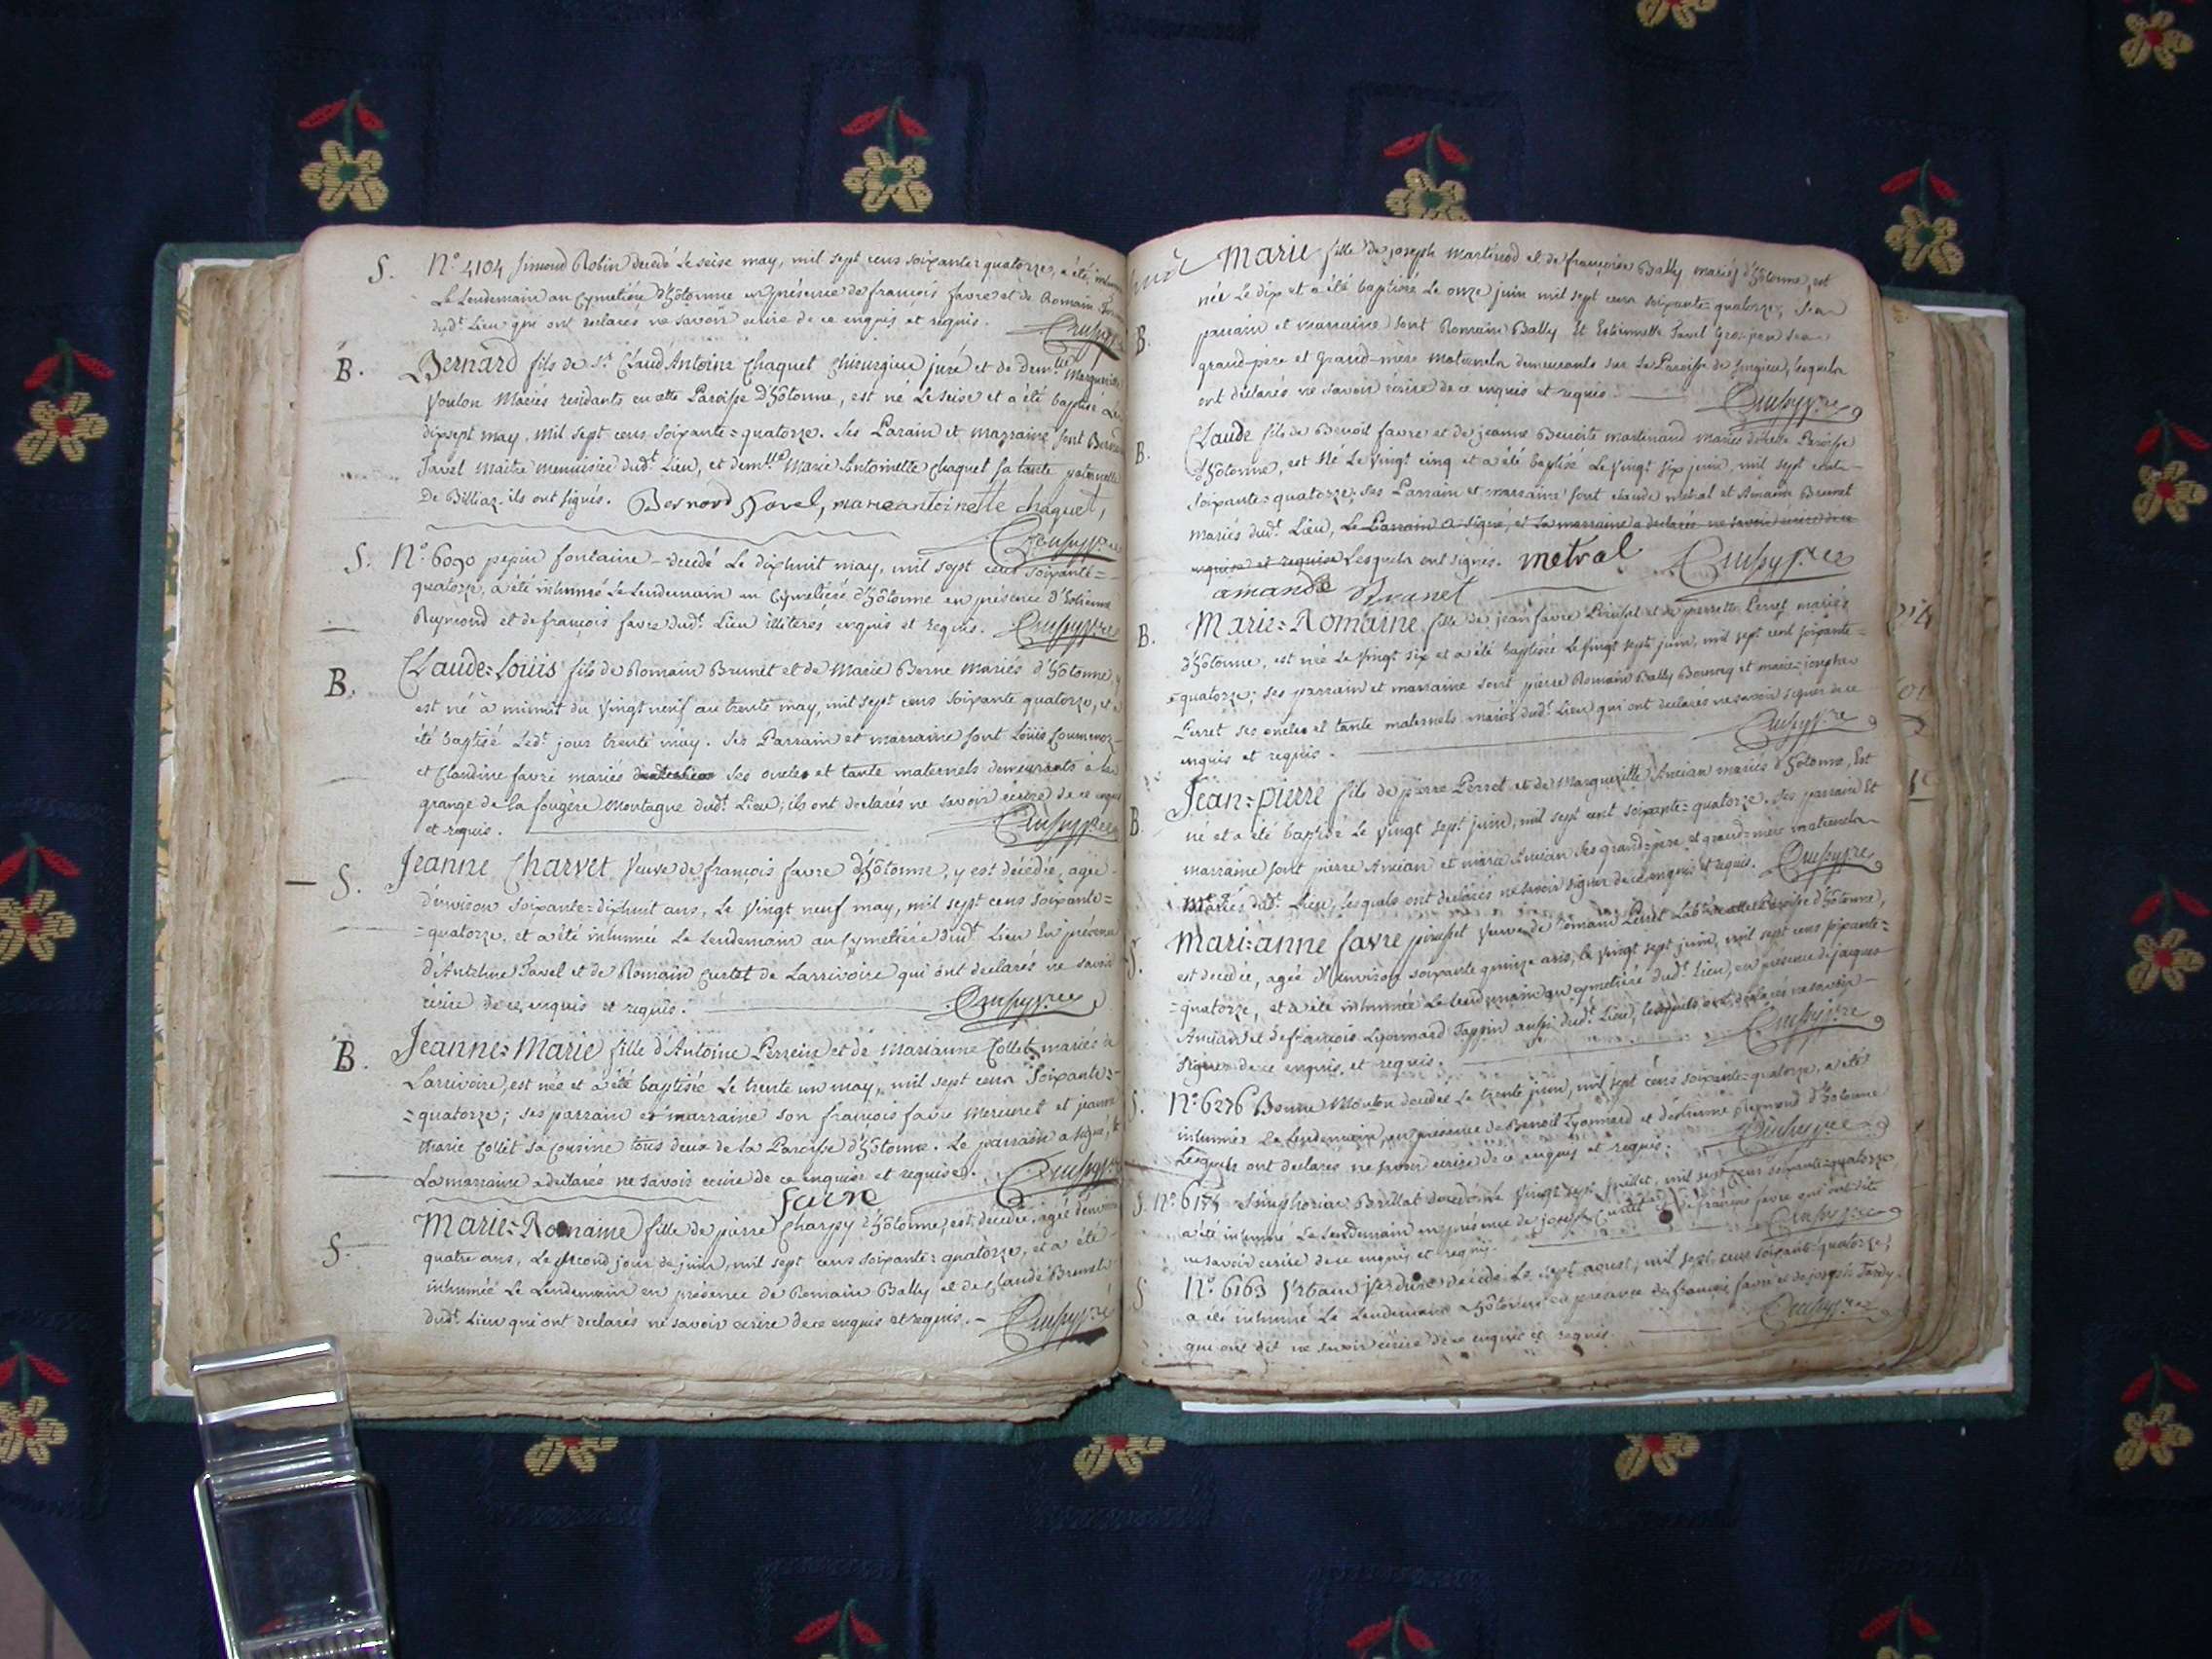 S. N.º 4104 simond Robin decedé le seise may, mil sept cens soixante=quatorze, a été
Le Lendemain au Cymetière d'hôtonne en présence de françois favre et de Romain
dudt Lieu qui ont declarés ne savoir ecrire de ce enquis et requis.
B. Bernard fils de Sr Claud'Antoine Chaquet Chirurgien juré et de Demlle Marguerite
Mariés residants en cette Paroisse D'hôtonne, est né le seise et a été baptisé Le
dixsept may, mil sept cens soixante=quatorze. Ses Parain et marraine sont
Maitre menuisier dudt Lieu, et demlle Marie Antoinette chaquet sa tante paternelle
De Billiaz. ils ont signés. marie antoinette chaquet,
S. N.º 6090 pepin fontaine decedé Le dixhuit may, mil sept cens soixante=
quatorze, a été inhumé Le Lendemain au Cymetière d'hôtonne en présence d'Estienne
Reymond et de françois favre dudt Lieu illiterés enquis et requis.
B. Claude=Loüis fils de Romain Brunet et de Marie Berne Mariés d'hôtonne,
est né à minuit du vingt neuf au trente may, mil sept cens soixante quatorze, et a
été baptisé Ledt jour trente may. Ses Parrain et marraine sont Loüis
et Claudine favre mariés ses oncle et tante maternels demeurants a la
grange de la fougère Montagne dudt Lieu; ils ont declarés ne savoir ecrire de ce enquis
et requis.
S. Jeanne Charvet Veuve de françois favre d'hôtonne, y est décédée, agée
d'environ soixante=dixhuit ans, Le vingt neuf may, mil sept cens soixante=
=quatorze, et a été inhumée Le Lendemain au Cymetière dudt Lieu En présence
d'Antelme Favel et de Romain Curtet de Larrivoire qui ont declarés ne savoir
écrire de ce enquis et requis.
B. Jeanne=Marie fille d'Antoine Perrein et de Marianne Collet mariés à
Larrivoire, est née et a été baptisée Le trente un may, mil sept cens soixante=
=quatorze; ses parrain et marraine son françois favre Mercuret et jeanne
Marie Collet sa Cousine tous deux de la Paroisse d'hôtonne. Le parrain a signé, et
La marraine a declarée ne savoir ecrire de ce enquise et requise.
favre
S. Marie=Romaine fille de pierre Charpy d'hôtonne, est decedée, agée d'environ
quatre ans, Le second jour de juin, mil sept cens soixante=quatorze, et a été
inhumée Le Lendemain en présence de Romain Bally et de Claude Brunet
dudt Lieu qui ont declarés ne savoir ecrire de ce enquis et requis.
Marie fille de joseph Martinod et de françoise Bally mariés d'hôtonne, est
née Le dix et a été baptisée Le onze juin mil sept cens soixante=quatorze; Son
B. parrain et marraine sont Romain Bally Et Estiennette
grand=père et Grand=mère Maternels demeurants sur La Paroisse de Songieu, lesquels
ont déclarés ne savoir écrire de ce enquis et requis.
B. Claude fils de Benoit favre et de jeanne Benoite martinand Mariés de cette Paroisse
d'hôtonne, est Né Le vingt cinq et a été baptisé Le vingt six juin, mil sept cents
soixante=quatorze; ses Parrain et marraine sont claude metral et Amande Brunet
mariés dudt Lieu, Le Parrain a signé, et La marraine a declarée ne savoir écrire de ce
enquise et requise Lesquels ont signés. metral
amande Brunet
B. Marie=Romaine fille de jean favre et de pierrette Perret mariés
d'hôtonne, est née Le vingt six et a été baptisée Le vingt sept juin, mil sept cent soixante=
=quatorze; ses parrain et marraine sont pierre Romain Bally et marie=josephe
Perret ses oncle et tante maternels mariés dudt Lieu qui ont declarés ne savoir signer de ce
enquis et requis.
B. Jean=pierre fils de pierre Perret et de Marguerite Ancian mariés d'hôtonne, Est
né et a été baptisé Le vingt sept juin, mil sept cent soixante=quatorze. Ses parrain Et
marraine sont pierre Ancian et marie Ancian ses grand=père et grand=mère maternels
mariés dudt Lieu, lesquels ont déclarés ne savoir signer de ce enquis et requis.
S. Mari=anne favre Veuve de Romain Perret Labr de cette Paroisse d'hôtonne,
est decedée, agée d'environ soixante quinze ans, le vingt sept juin, mil sept cens soixante=
=quatorze, et a été inhumée Le Lendemain au cymetière dudt Lieu, en présence de jacques
Ancian et de françois Lyonnard Tappin aussi dudt Lieu, lesquels ont déclarés ne savoir
signer de ce enquis et requis.
S. N.º 6276 Bonne Mouton decedée Le trente juin, mil sept cens soixante=quatorze, a été
inhumée Le Lendemain, en présence de Benoit Lyonnard et d'estienne Reymond d'hôtonne
Lesquels ont declarés ne savoir ecrire de ce enquis et requis.
S. N.º Simphorien Brillat decedé le vingt sept juillet, mil sept cens soixante=quatorze
a été inhumé Le Lendemain en présence de joseph Curtet et de françois favre qui ont dit
ne savoir ecrire de ce enquis et requis.
S N.º 6163 Urbain Verdure decedé Le sept aoust, mil sept cens soixante=quatorze,
a été inhumé Le Lendemain a hôtonne en présence de françois favre et de joseph Tardy
qui ont dit ne savoir écrire de ce enquis et requis.